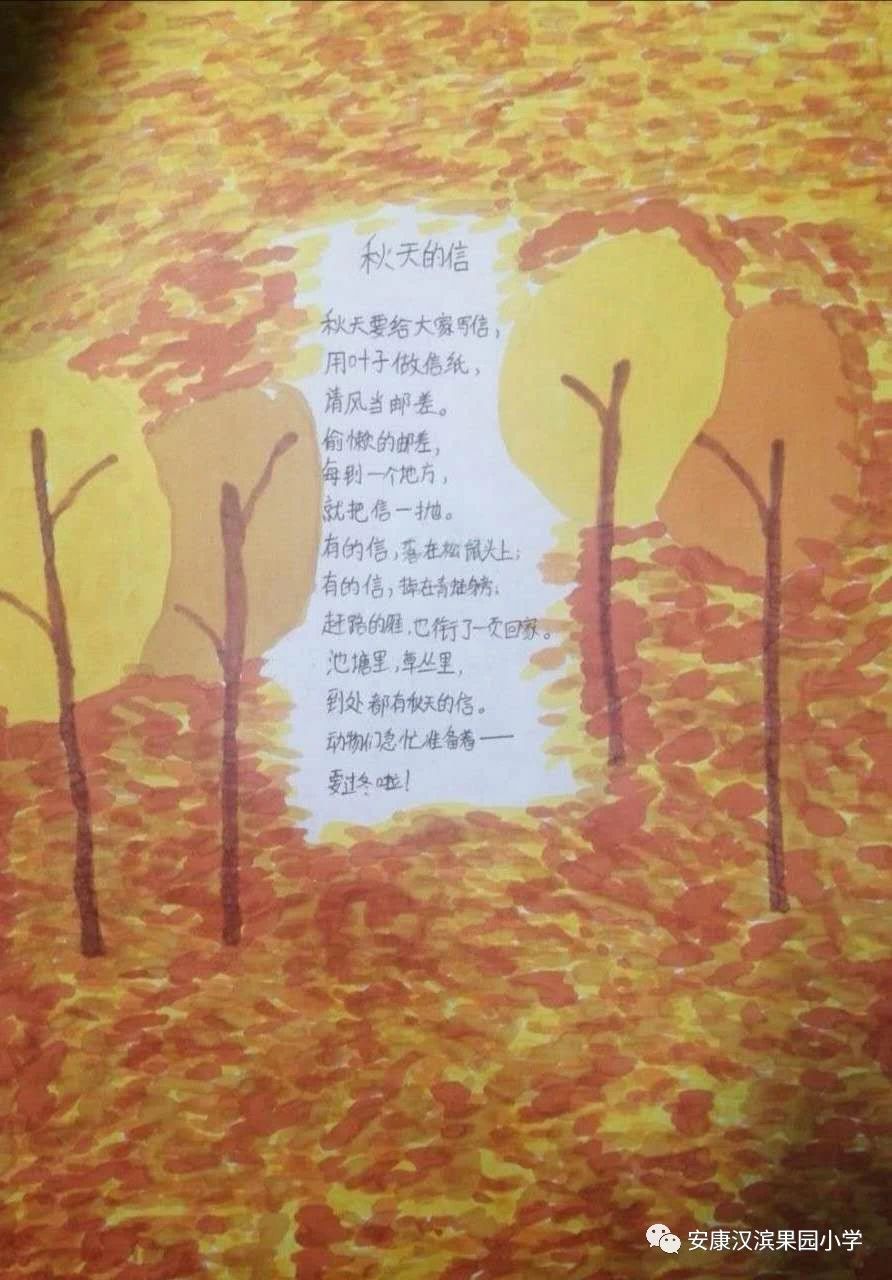 秋天的信
秋天要给大家写信,
用叶子做信纸,
清风当邮差。
偷懒的邮差,
每到一个地方,
就把信一抛。
有的信,落在松鼠头上;
有的信,掉在青蛙身旁;
赶路的雁,也衔了一页回家。
池塘里,草丛里,
到处都有秋天的信。
动物们急忙准备着——
要过冬啦!
安康汉滨果园小学